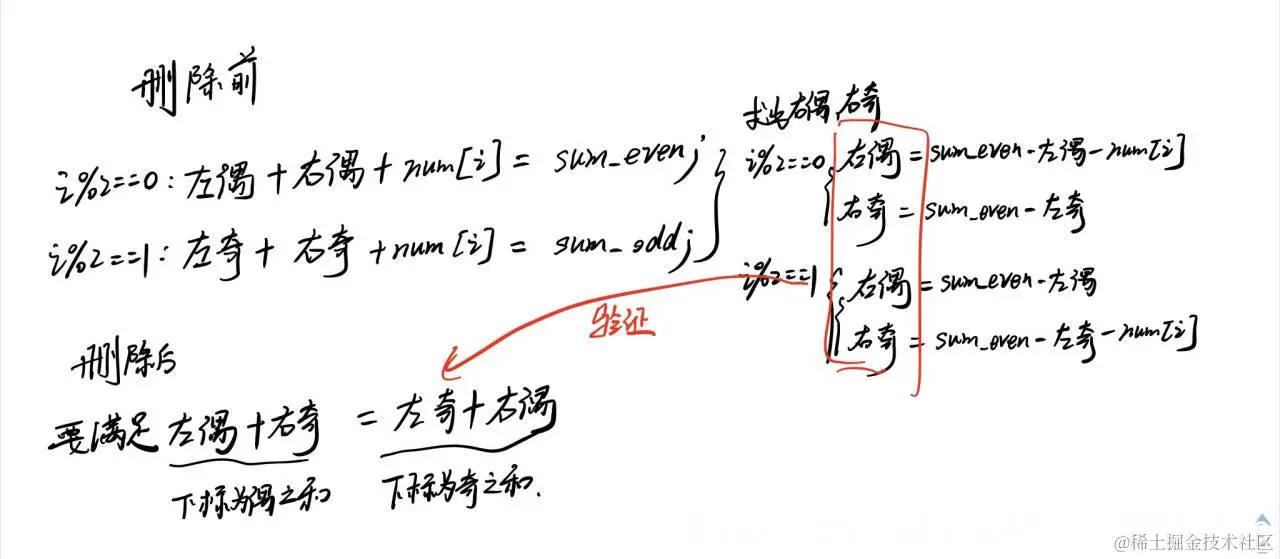 删除前
i%2==0:左偶+右偶+num[i]= sum_even;
i%2==1:左奇+右奇+num[i]= sum_odd;
求出右偶,右奇
i%2==0 右偶=sum_even-左偶-num[i]
右奇=sum_even-左奇
i%2==1 右偶=sum_even-左偶
右奇=sum_even-左奇-num[i]
验证
删除后
要满足 左偶+右奇 = 左奇+右偶
下标为偶之和 下标为奇之和.
@稀土掘金技术社区